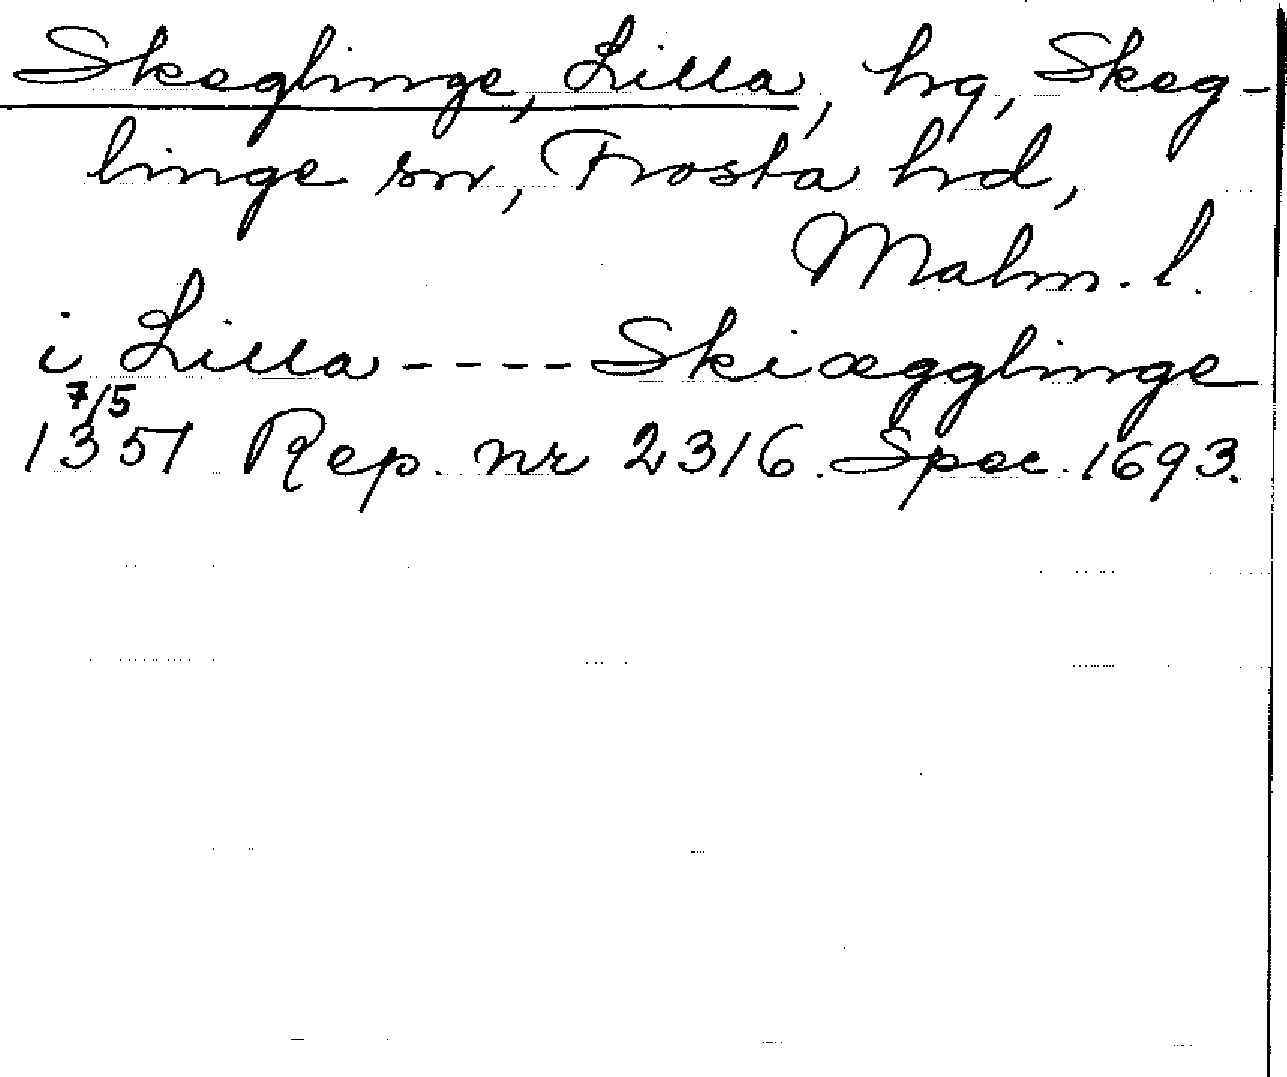 Skeglinge, Lilla, hg, Skeg-
linge sn, Frosta hrd,
Malm. l.
i Lilla ---- Skiægglinge
7/5
1351 Rep. nr 2316. Spec. 1693.